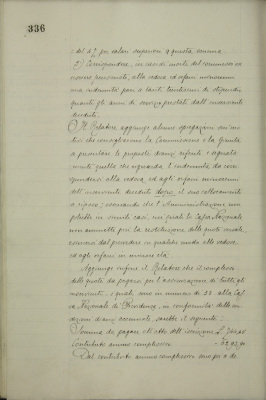 336
e del 4 % per valori superiori a questa somma.
2) Corrispondere, in caso di morte del commesso in
servizio, alla vedova ed orfani minorenni
una indennità pari a tanti di stipendio
quanti gli anni di servizio prestati dall'inserviente
decaduto.
Il Relatore aggiunge alcune spiegazioni sui mo
tivi che consigliarono la Commissione e la Giunta
a presentare le proposte dianzi riferite e segnata
mente quella che riguarda l'indennità da corri
spondersi alla vedova ed agli orfani minorenni
dell'inserviente decaduto dopo il suo collocamento
a riposo; essendochè l'Amministrazione non
potrebbe in simili casi, nei quali la Cassa Nazionale
non ammette più la restituzione delle quote versate,
esimersi dal provvedere in qualche modo alla vedova
ed agli orfani in minore età.
Aggiunge infine il Relatore che il complesso
delle quote da pagarsi per l'assicurazione di tutti gli
inservienti, i quali sono in numero di 22 alla Cas
sa Nazionale di Previdenza, in conformità delle
dianzi accennate, sarebbe il seguente:
Somma da pagare all'atto dell'iscrizione L.
Contributo annuo complessivo
Dal contributo annuo complessivo